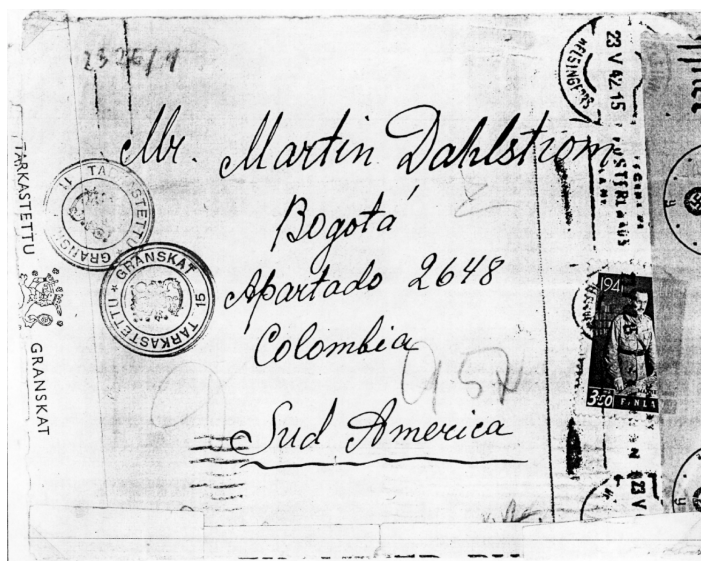 2326/1
HELSINGFORS
23 V 42. 15
Mr. Martin Dahlström
Bogotá
Apartado 2648
Colombia
Sud America
TARKASTETTU
GRANSKAT
11 TARKASTETTU GRANSKAT
GRANSKAT 15 TARKASTETTU *
957
1941
3:50 FINLA
23 V